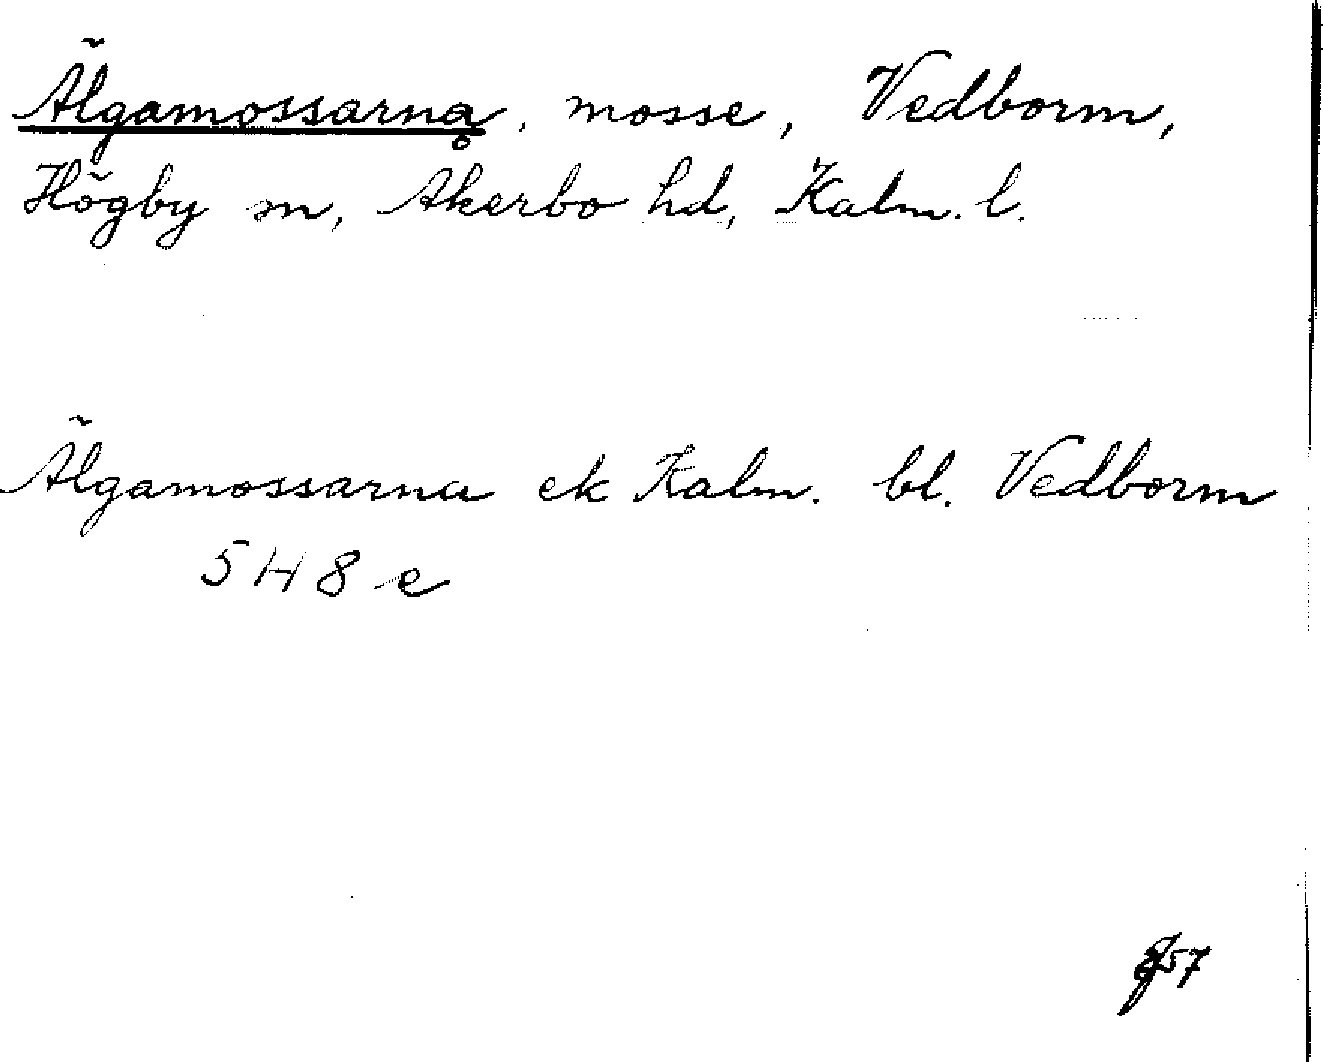 Älgamossarna, mosse, Vedborm,
Högby sn, Åkerbo hd, Kalm. l.
Älgamossarna ek Kalm. bl. Vedborm
5H8e
57